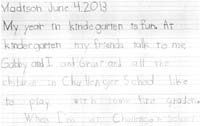 Madison June 4, 2013
My year in kindergarten is fun. At
kindergarten my friends talk to me,
Gabby and I and Grant and all the
children in Challenger School like
to play with some first graders.
When I'm at Challenger School